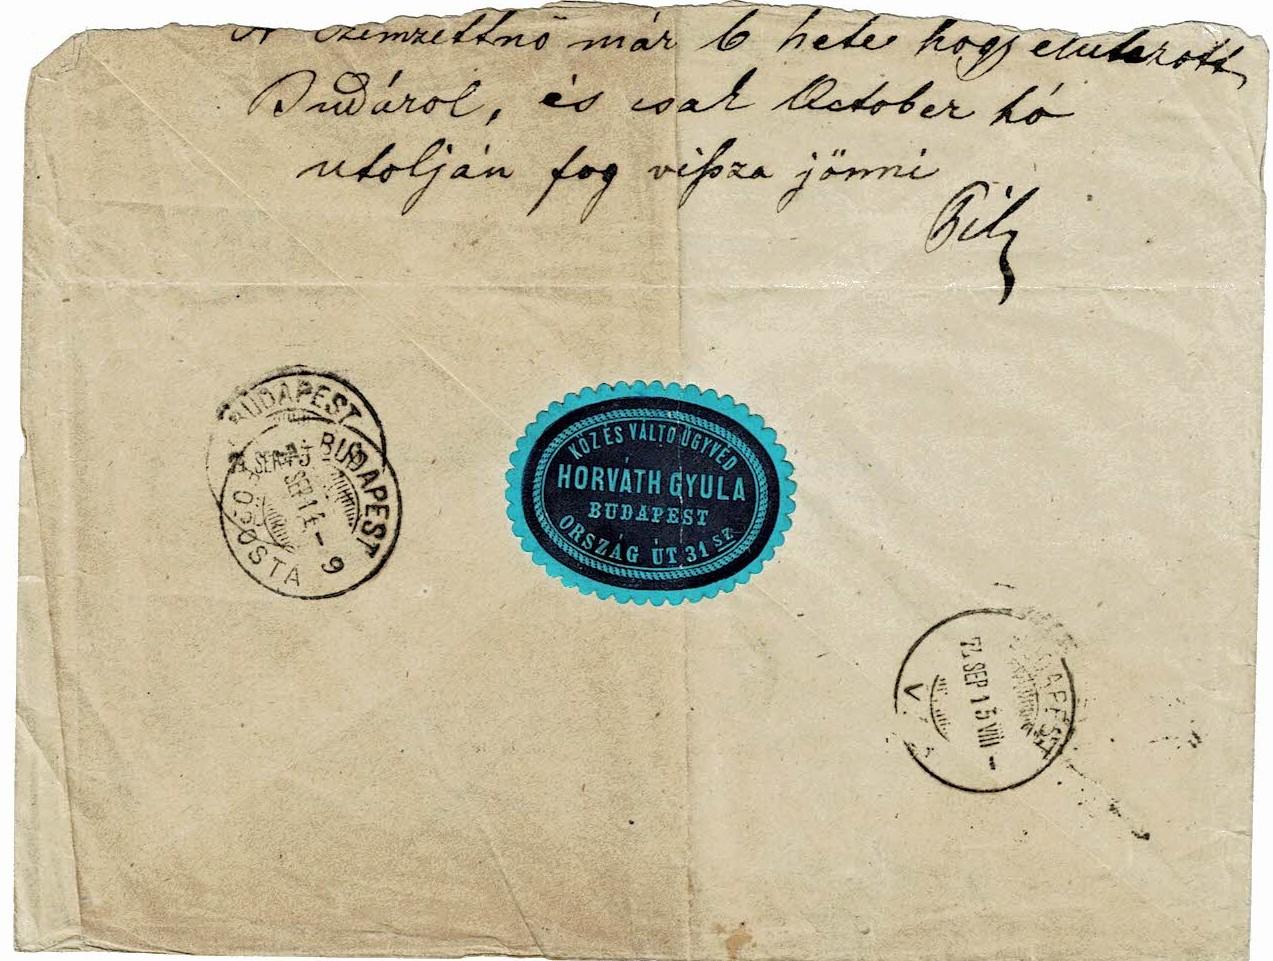 A czimzettnő már 6 hete hogy elutazott
Budárol, és csak October hó
utolján fog vißza jönni
BUDAPEST
BUDAPEST
SEP 14
9
POSTA
KÖZ ÉS VÁLTÓ ÜGYVÉD
HORVÁTH GYULA
BUDAPEST
ORSZÁG ÚT 31 SZ.
BUDAPEST
SEP 15 VIII